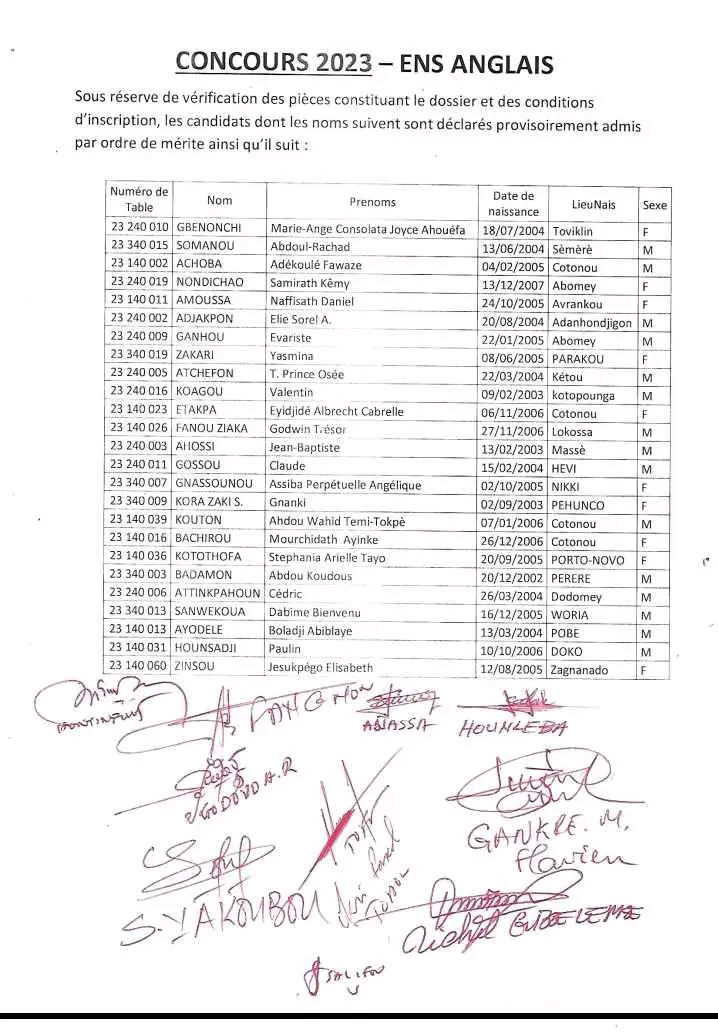 CONCOURS 2023 – ENS ANGLAIS
Sous réserve de vérification des pièces constituant le dossier et des conditions
d'inscription, les candidats dont les noms suivent sont déclarés provisoirement admis
par ordre de mérite ainsi qu'il suit :
Numéro de Table Nom Prenoms Date de naissance LieuNais Sexe
23 240 010 GBENONCHI Marie-Ange Consolata Joyce Ahouéfa 18/07/2004 Toviklin F
23 340 015 SOMANOU Abdoul-Rachad 13/06/2004 Sèmèrè M
23 140 002 ACHOBA Adékoulé Fawaze 04/02/2005 Cotonou M
23 240 019 NONDICHAO Samirath Kêmy 13/12/2007 Abomey F
23 140 011 AMOUSSA Naffisath Daniel 24/10/2005 Avrankou F
23 240 002 ADJAKPON Elie Sorel A. 20/08/2004 Adanhondjigon M
23 240 009 GANHOU Evariste 22/01/2005 Abomey M
23 340 019 ZAKARI Yasmina 08/06/2005 PARAKOU F
23 240 005 ATCHEFON T. Prince Osée 22/03/2004 Kétou M
23 240 016 KOAGOU Valentin 09/02/2003 kotopounga M
23 140 023 ETAKPA Eyidjidé Albrecht Cabrelle 06/11/2006 Cotonou F
23 140 026 FANOU ZIAKA Godwin Trésor 27/11/2006 Lokossa M
23 240 003 AHOSSI Jean-Baptiste 13/02/2003 Massè M
23 240 011 GOSSOU Claude 15/02/2004 HEVI M
23 340 007 GNASSOUNOU Assiba Perpétuelle Angélique 02/10/2005 NIKKI F
23 340 009 KORA ZAKI S. Gnanki 02/09/2003 PEHUNCO F
23 140 039 KOUTON Ahdou Wahid Temi-Tokpè 07/01/2006 Cotonou M
23 140 016 BACHIROU Mourchidath Ayinke 26/12/2006 Cotonou F
23 140 036 KOTOTHOFA Stephania Arielle Tayo 20/09/2005 PORTO-NOVO F
23 340 003 BADAMON Abdou Koudous 20/12/2002 PERERE M
23 240 006 ATTINKPAHOUN Cédric 26/03/2004 Dodomey M
23 340 013 SANWEKOUA Dabime Bienvenu 16/12/2005 WORIA M
23 140 013 AYODELE Boladji Abiblaye 13/03/2004 POBE M
23 140 031 HOUNSADJI Paulin 10/10/2006 DOKO M
23 140 060 ZINSOU Jesukpégo Elisabeth 12/08/2005 Zagnanado F
HOUNLEBA
GANKPE. M.
Flavien
S. YAKOUBOU
Michel
SALIFOU